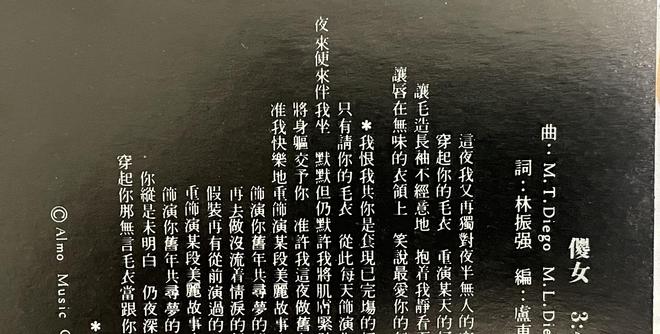 傻女 3:
曲：M.T.Diego M.L.Die
詞：林振强 編：盧東
這夜我又再獨對夜半無人的
穿起你的毛衣 重演某天的
讓毛造長袖不經意地 抱着我靜看
讓唇在無味的衣領上 笑說最愛你的
＊我恨我共你是套現已完場的
只有請你的毛衣 從此每天飾演
夜來便來伴我坐 默默但仍默許我將肌膚緊
將身軀交予你 准許我這夜做舊
准我快樂地重飾演某段美麗故事
飾演你舊年共尋夢的
再去做沒流着情淚的
假裝再有從前演過的
重飾演某段美麗故事
飾演你舊年共尋夢的
你縱是未明白 仍夜深
穿起你那無言毛衣當跟你
＊
©Almo Music C